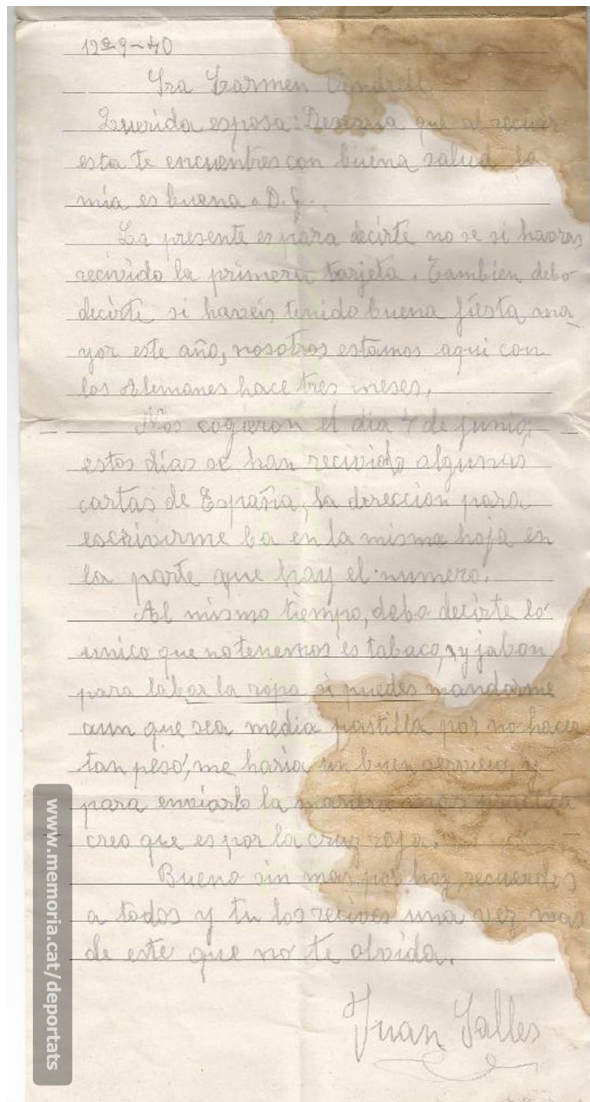 12-9-40
Sra Carmen Vendrell
Querida esposa: Desearia que al recivir
esta te encuentres con buena salud la
mia es buena a D. G.
La presente es para decirte no se si havras
recivido la primera tarjeta. Tambien debo
decirte si haveis tenido buena fiesta ma-
yor este año, nosotros estamos aqui con
los Alemanes hace tres meses,
Nos cogieron el dia 7 de junio,
estos días se han recivido algunas
cartas de España, la dereccion para
escrivirme ba en la misma hoja en
la parte que hay el numero.
Al mismo tiempo, debo decirte lo
unico que no tenemos es tabaco, y jabon
para labar la ropa si puedes mandarme
aun que sea media pastilla por no hacer
tan peso, me haria un buen servicio y
para enviarlo la manera mas practica
creo que es por la cruz roja.
Bueno sin mas por hoy, recuerdos
a todos y tu los recives una vez mas
de este que no te olvida.
Juan Salles
www.memoria.cat/deportats